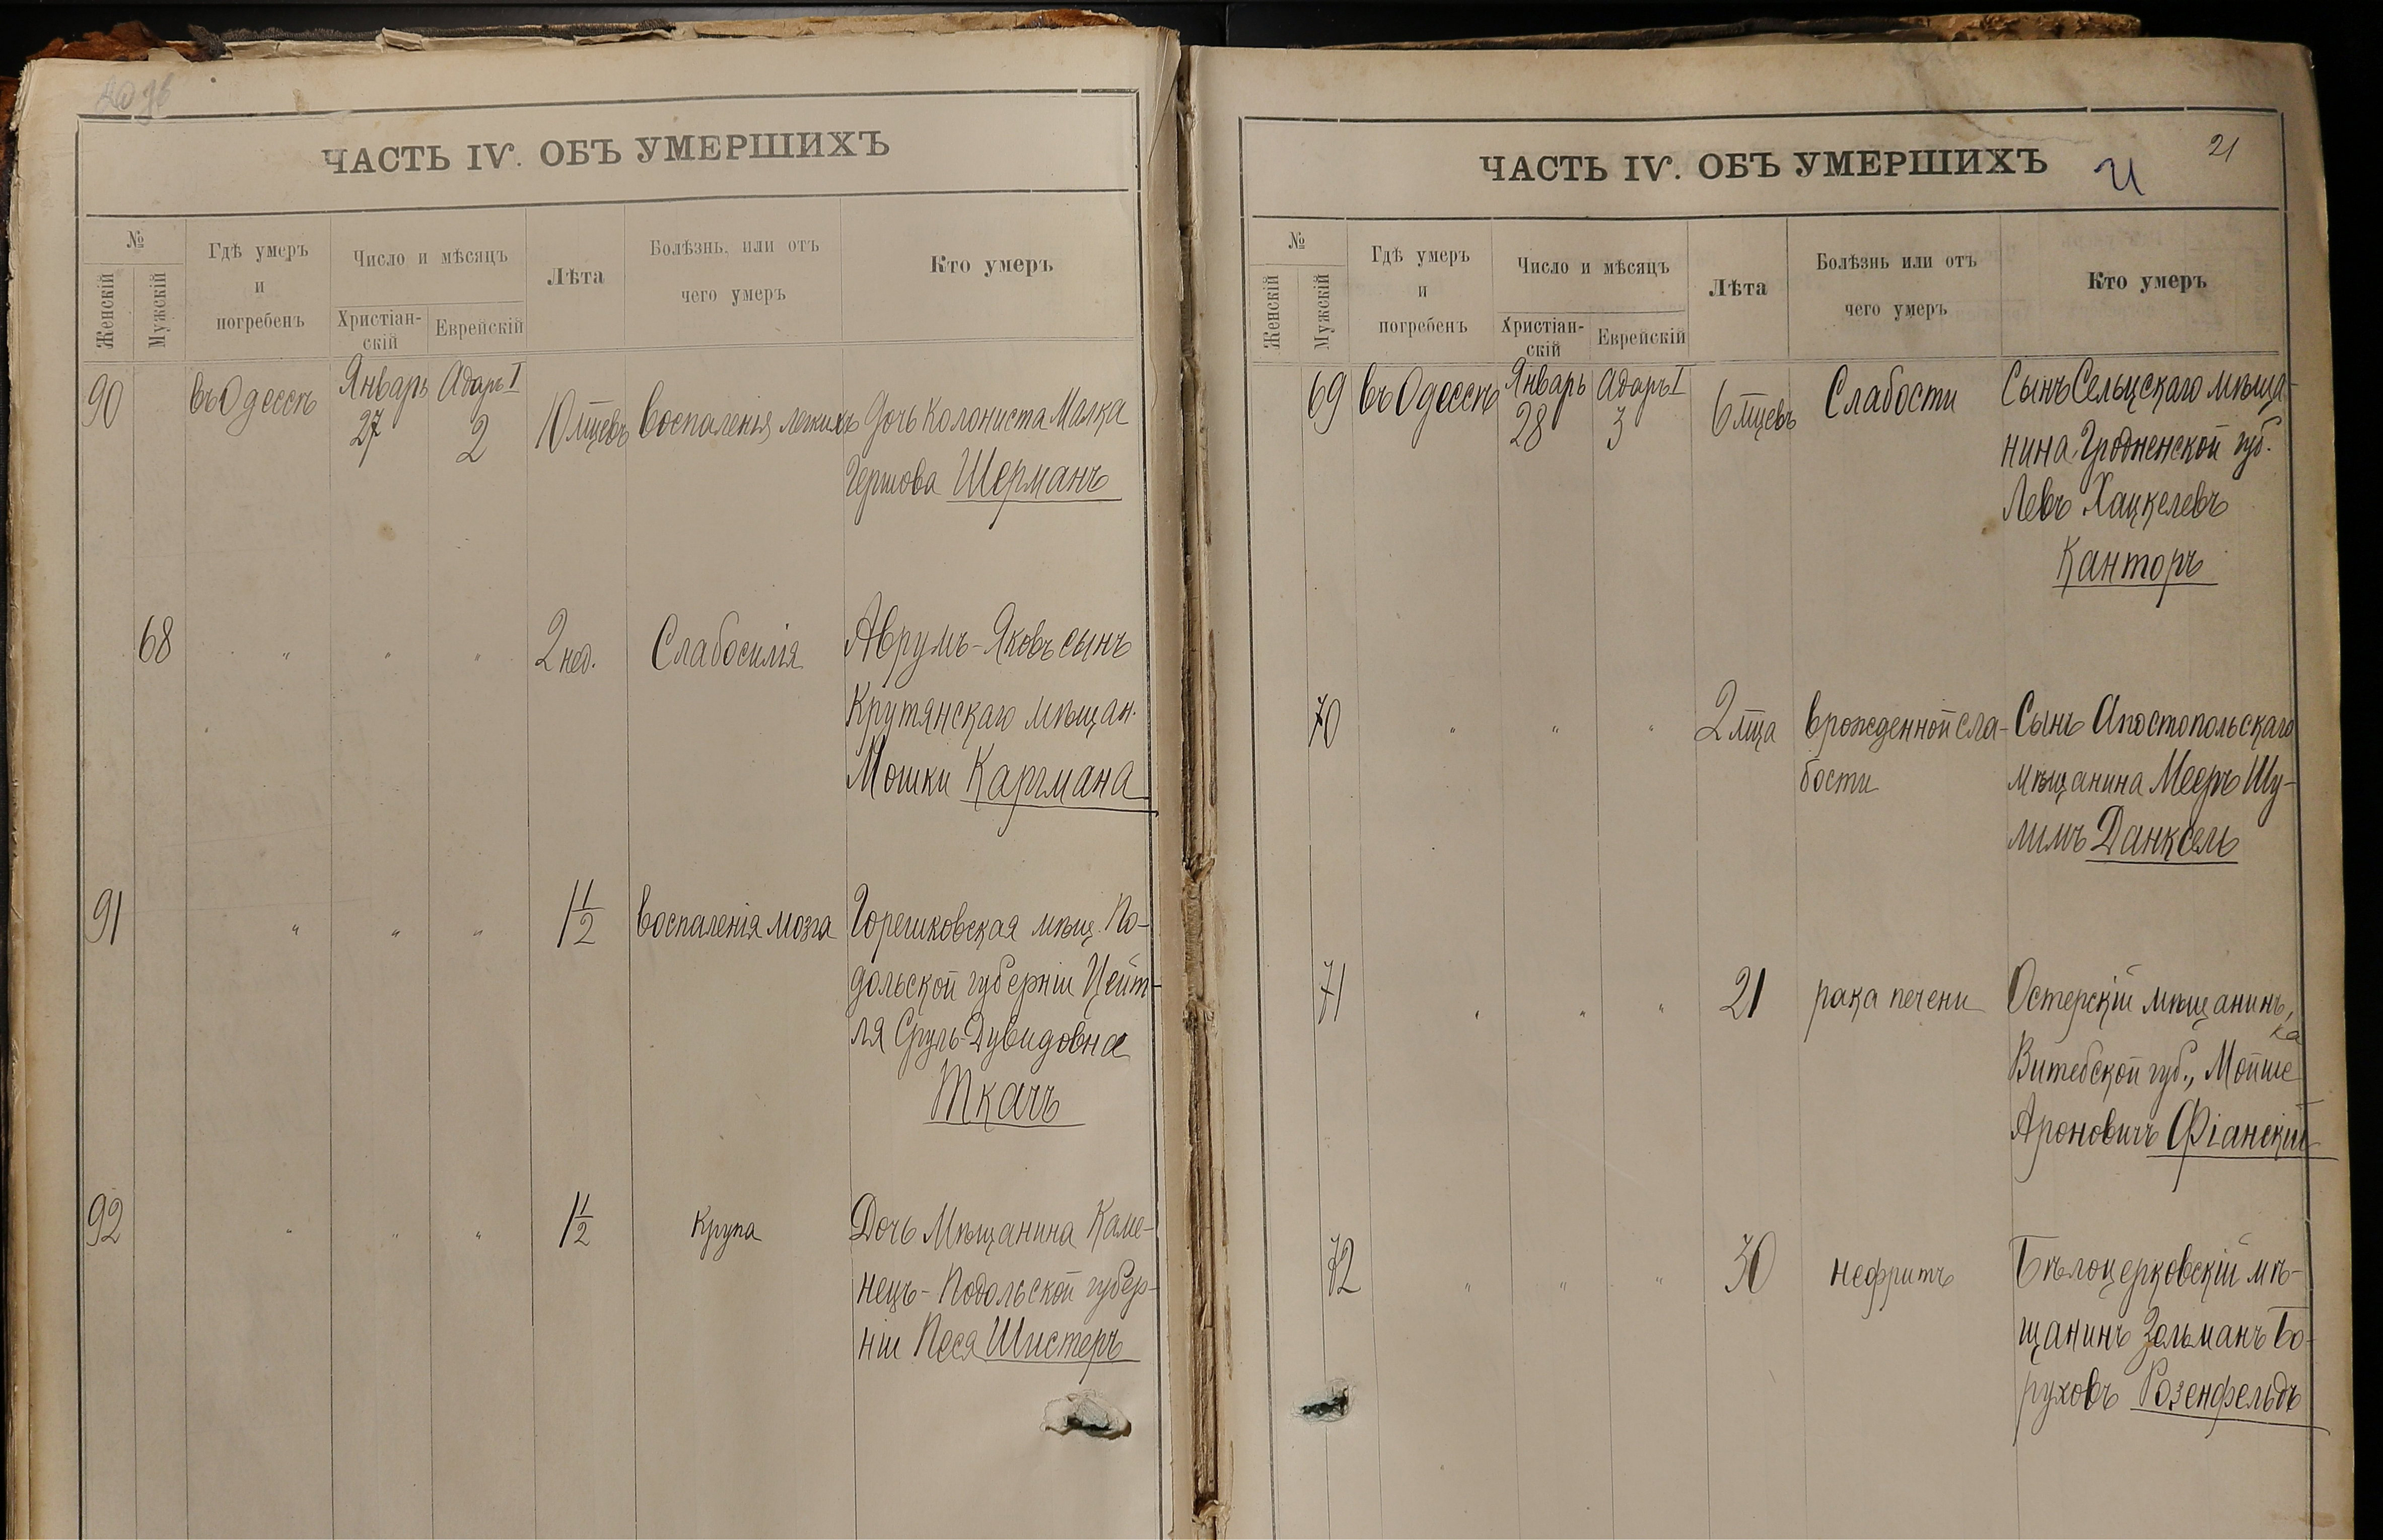 ЧАСТЬ IV. ОБЪ УМЕРШИХЪ
№
Женскій
Мужскій
Гдѣ умеръ
и
погребенъ
Число и мѣсяцъ
Христіан-
скій
Еврейскій
Лѣта
Болѣзнь, или отъ
чего умеръ
Кто умеръ
90 въ Одессѣ Январь 27 Адаръ I 2 10 мцевъ воспаленія легкихъ Дочь колониста Малка
Гершова Шерманъ
68 " " " 2 нед. Слабосилія Аврумъ-Яковъ сынъ
Крутянскаго мѣщан.
Мошки Каргмана
91 " " " 1 1/2 воспаленія мозга Горешковская мѣщ. По-
дольской губерніи Цейт-
ля Сруль-Дувидовна
Ткачъ
92 " " " 1 1/2 Крупа Дочь Мѣщанина Каме-
нецъ-Подольской губер-
ніи Песя Шистеръ
ЧАСТЬ IV. ОБЪ УМЕРШИХЪ
21
21
№
Женскій
Мужскій
Гдѣ умеръ
и
погребенъ
Число и мѣсяцъ
Христіан-
скій
Еврейскій
Лѣта
Болѣзнь или отъ
чего умеръ
Кто умеръ
69 въ Одессѣ Январь 28 Адаръ I 3 6 мцевъ Слабости Сынъ Сельцскаго мѣща-
нина, Гродненской губ.
Левъ Хацкелевъ
Канторъ
70 " " " 2 мца врожденной сла- Сынъ Апостопольскаго
бости мѣщанина Мееръ Шу-
лимъ Данксель
71 " " " 21 рака печени Остерскій мѣщанинъ,
ка
Витебской губ., Мойше
Ароновичъ Фіанскій
72 " " " 30 нефритъ Бѣлоцерковскій мѣ-
щанинъ Зельманъ Бо-
руховъ Розенфельдъ